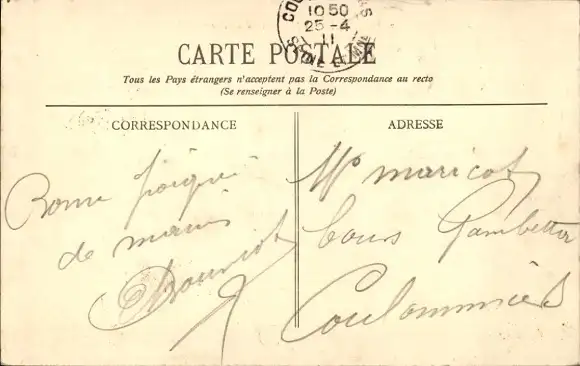 COU
10 50
25 - 4
11
SEINE ET MNE
CARTE POSTALE
Tous les Pays étrangers n'acceptent pas la Correspondance au recto
(Se renseigner à la Poste)
CORRESPONDANCE
Bonne poignée
de mains
ADRESSE
Mr maricot
Cours Gambetta
Coulommiers